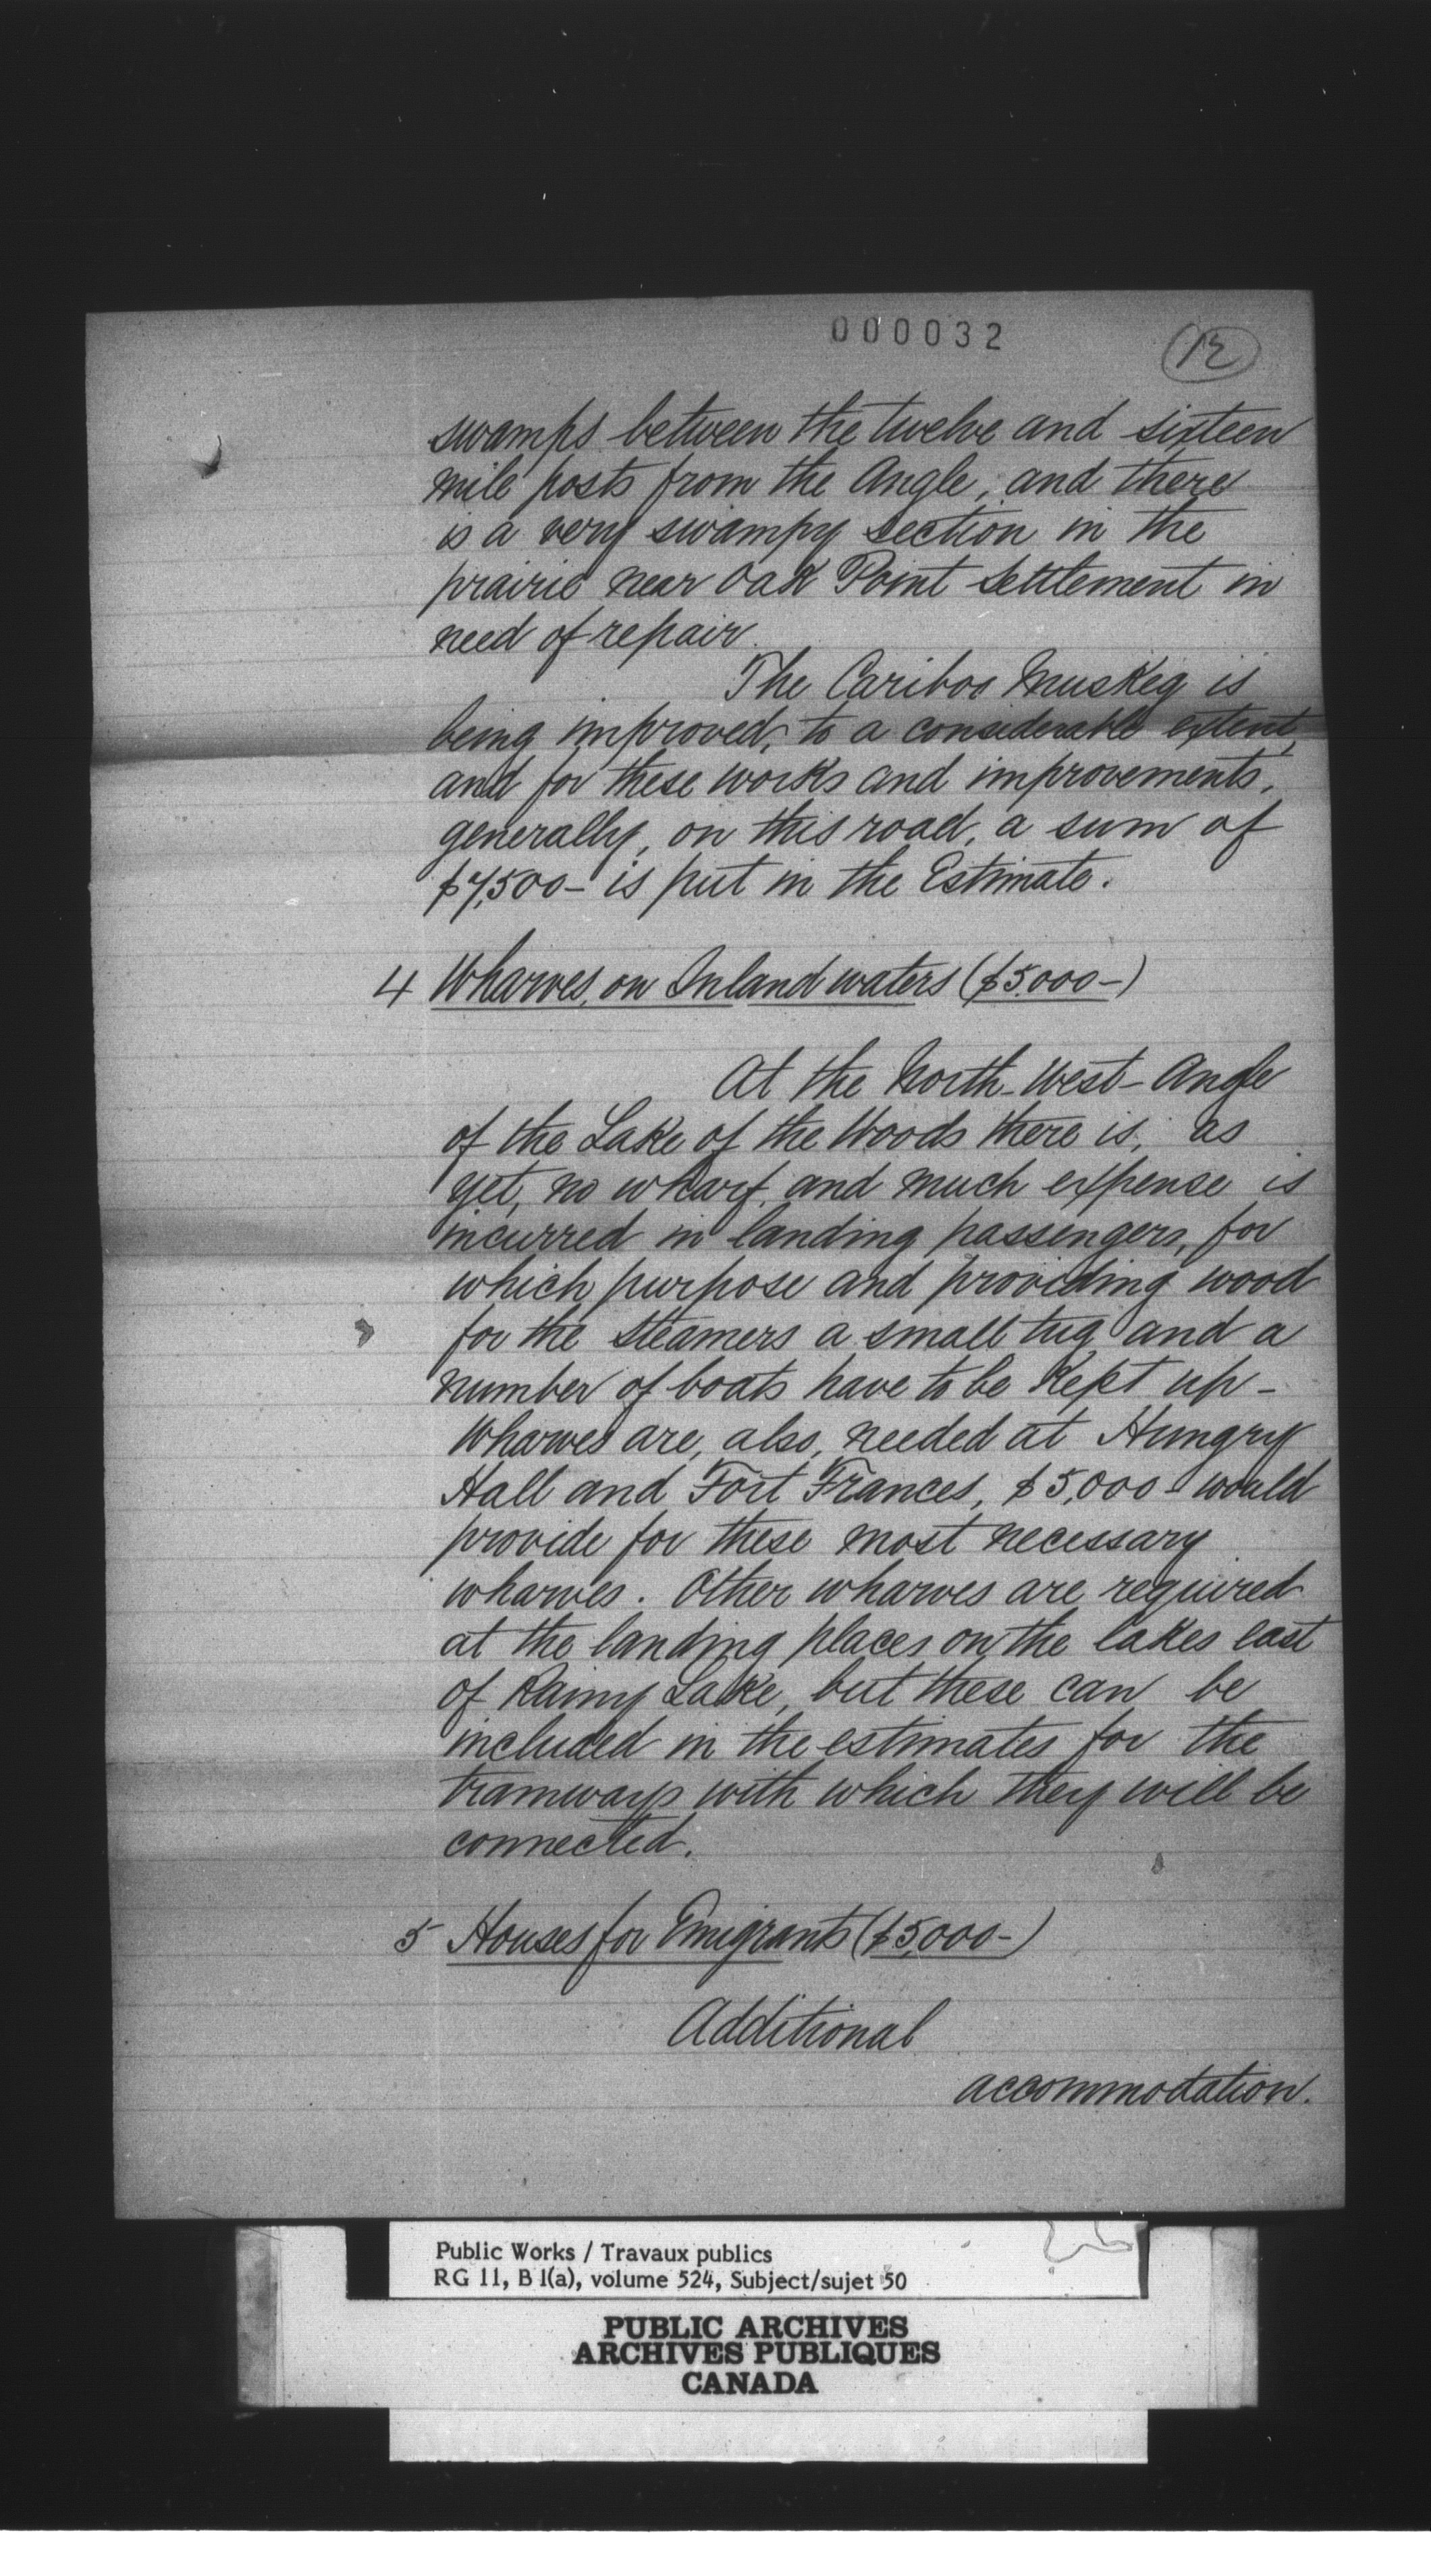 000032
12
swamps between the twelve and sixteen
mile posts from the Angle, and there
is a very swampy section in the
prairie near Oak Point Settlement in
need of repair.
The Cariboo Muskeg is
being improved, to a considerable extent,
and for these works and improvements,
generally, on this road, a sum of
$7,500- is put in the Estimate.
4 Wharves, on Inland waters ($5.000-)
At the North-West-Angle
of the Lake of the Woods there is, as
yet, no wharf, and much expense is
incurred in landing passengers, for
which purpose and providing wood
for the steamers a small tug and a
number of boats have to be kept up-
Wharves are, also, needed at Hungry
Hall and Fort Frances, $5,000- would
provide for these most necessary
wharves. Other wharves are required
at the landing places on the lakes east
of Rainy Lake, but these can be
included in the estimates for the
tramways with which they will be
connected.
5 Houses for Emigrants ($5,000-)
Additional
accommodation.
Public Works / Travaux publics
RG 11, B 1(a), volume 524, Subject/sujet 50
PUBLIC ARCHIVES
ARCHIVES PUBLIQUES
CANADA